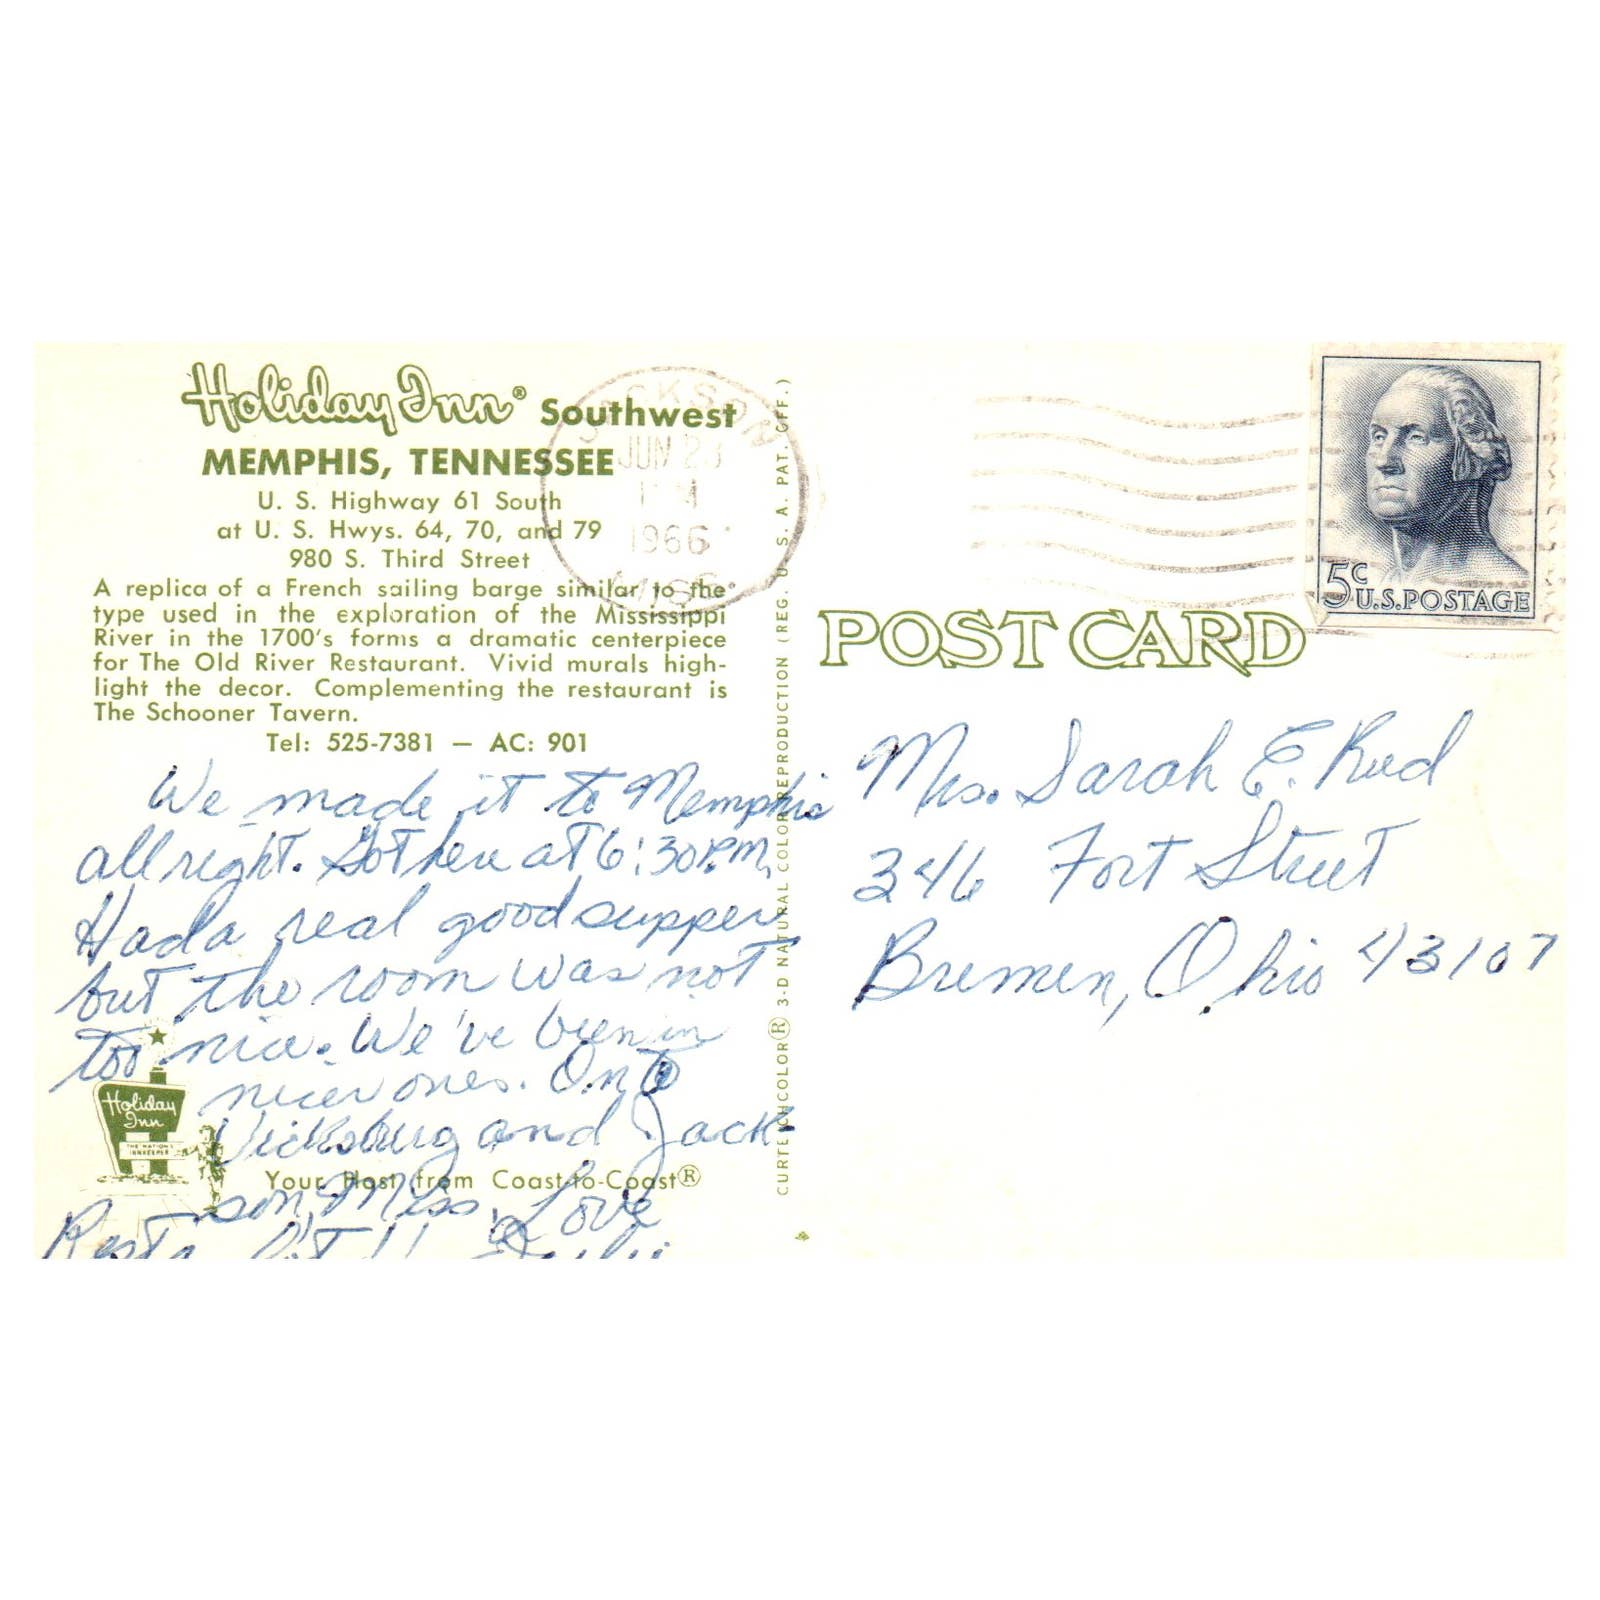 Holiday Inn® Southwest
MEMPHIS, TENNESSEE
U. S. Highway 61 South
at U. S. Hwys. 64, 70, and 79
980 S. Third Street
A replica of a French sailing barge similar to the
type used in the exploration of the Mississippi
River in the 1700's forms a dramatic centerpiece
for The Old River Restaurant. Vivid murals high-
light the decor. Complementing the restaurant is
The Schooner Tavern.
Tel: 525-7381 — AC: 901
We made it to Memphis
all right. Got here at 6:30 P.M.
Had a real good supper
but the room was not
too nice. We've been in
nicer ones. On to
Vicksburg and Jack-
son, Miss. Love
Holiday
Inn
THE NATION'S
INNKEEPER
Your Host from Coast-to-Coast®
CURTEICHCOLOR® 3-D NATURAL COLOR REPRODUCTION (REG. U. S. A. PAT. OFF.)
JACKSON
JUN 23
1966
MISS.
5c
U.S. POSTAGE
POST CARD
Mrs. Sarah E. Reed
346 Fort Street
Bremen, Ohio 43107